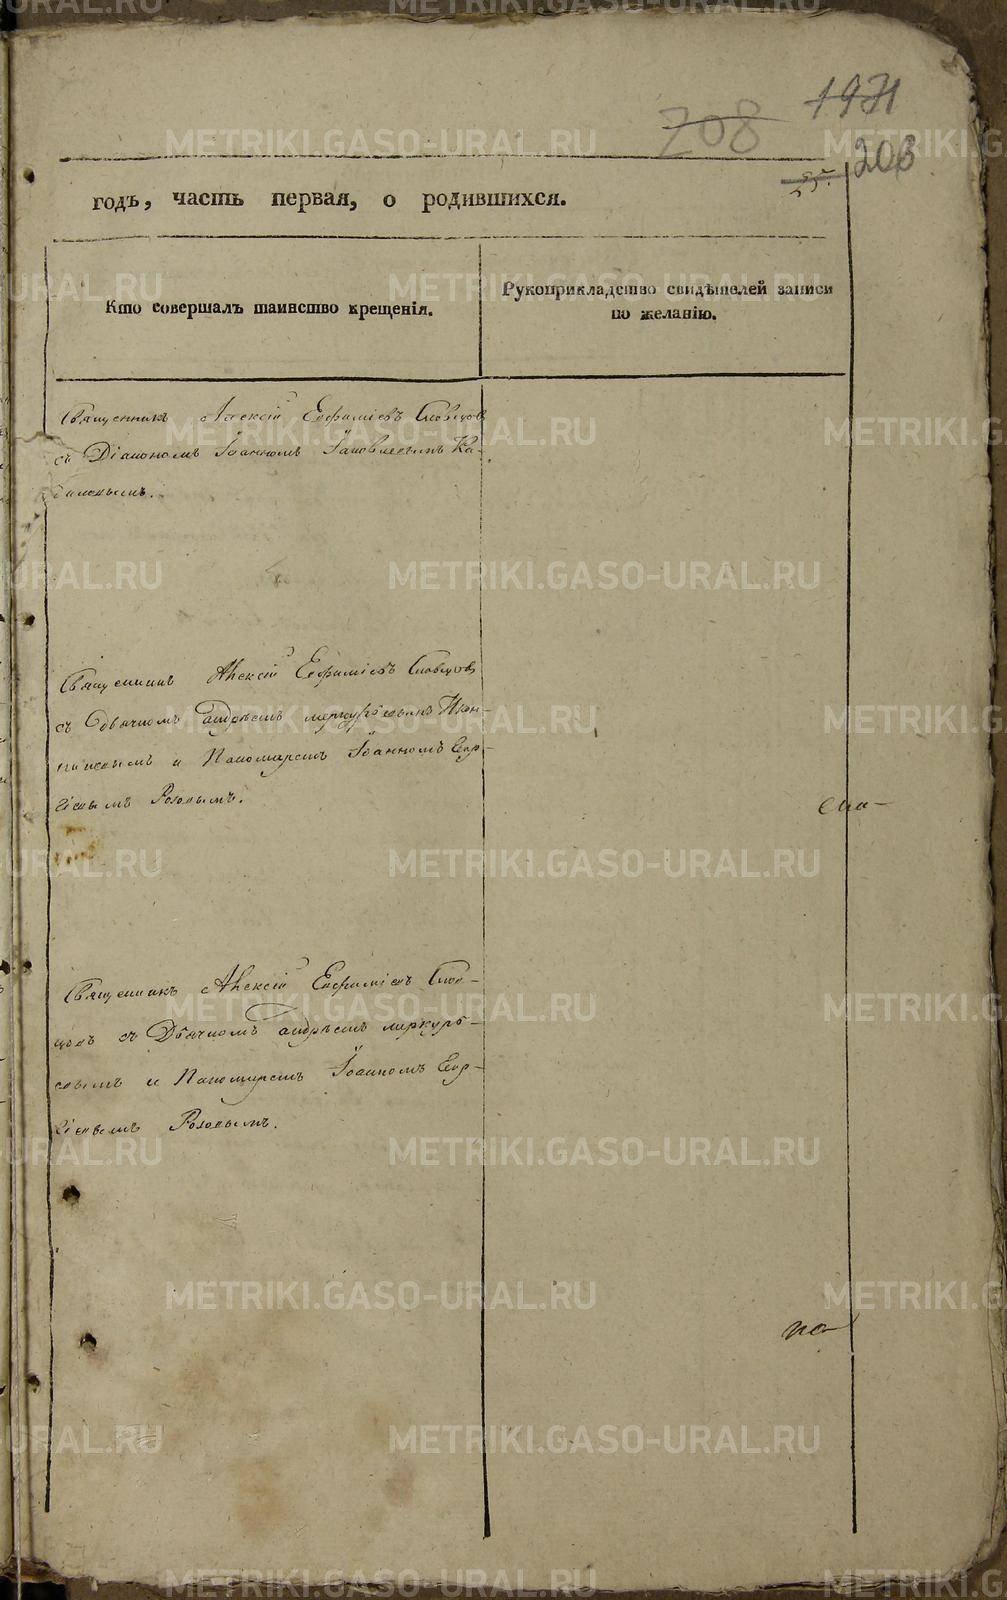 1971
208
206
годъ, часть первая, о родившихся.
Кто совершалъ таинство крещенія.
Рукоприкладство свидѣтелей записи
по желанію.
Священникъ Алексій Евфиміевъ Словцов
съ Діакономъ Іоанномъ Іаковлевымъ Ка-
Священникъ Алексій Евфиміевъ Словцов
съ Дьячкомъ Андреемъ меркурьевымъ Икон-
никовымъ и Пономаремъ Іоанномъ Геор-
гіевымъ Розовымъ.
Священникъ Алексій Евфиміевъ Слов-
цовъ съ Дьячкомъ Андреемъ меркурь-
евымъ и Пономаремъ Іоанномъ Геор-
гіевымъ Розовымъ.
по
METRIKI.GASO-URAL.RU